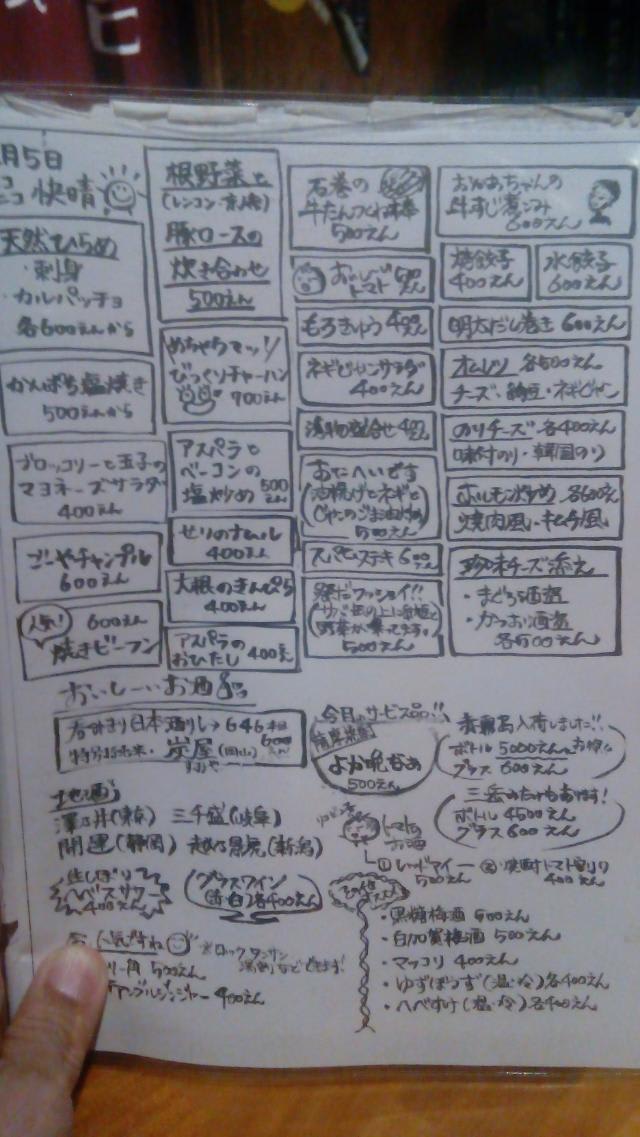 月5日
快晴
天然ひらめ
・刺身
・カルパッチョ
各600えんから
かんぱち塩焼き
500えんから
ブロッコリーと玉子の
マヨネーズサラダ
400えん
ゴーヤチャンプル
600えん
人気!
600えん
焼きビーフン
根野菜と
(レンコン・
豚ロースの
炊き合わせ
500えん
めちゃウマッ!
びっくりチャーハン
700えん
アスパラと
ベーコンの
塩炒め 500えん
せりのナムル
400えん
大根のきんぴら
400えん
アスパラの
おひたし 400えん
石巻の
牛たんつくね串
500えん
トマト
もろきゅう 400えん
ネギジャンサラダ
400えん
漬物盛合せ
おたへいです
(油揚げとネギと
500えん
スパムステキ 600えん
祭だワッショイ!!
500えん
おかあちゃんの
牛すじ煮こみ
600えん
焼餃子
400えん
水餃子
600えん
明太だし巻き 600えん
オムレツ 各500えん
チーズ・納豆・ネギジャン
のりチーズ 各400えん
味付のり・韓国のり
ホルモン炒め 各600えん
焼肉風・キムチ風
珍味チーズ添え
・まぐろ酒盗
・かつお酒盗
各500えん
おいしーいお酒
日本酒
炭屋(岡山) 600えん
地酒
澤乃井(東京) 三千盛(岐阜)
開運(静岡) 越乃景虎(新潟)
生しぼり
400えん
グラスワイン
(赤・白)各400えん
人気
※ロック タンサン
水割などできます!
角 500えん
ジンジャー 400えん
今日のサービス品!!
よか晩なあ
500えん
赤霧島入荷しました!!
ボトル 5000えん
グラス 600えん
三岳
ボトル 4500えん
グラス 600えん
トマトの
お酒
①レッドアイ
500えん
②焼酎トマト割り
400えん
・黒糖梅酒 500えん
・白加賀梅酒 500えん
・マッコリ 400えん
・ゆずぽんず(温・冷)各400えん
・へべすけ(温・冷)各400えん